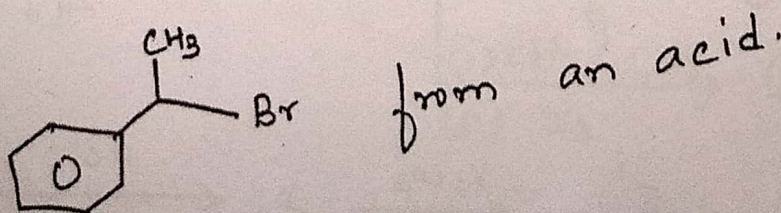 CH3
Br from an acid.